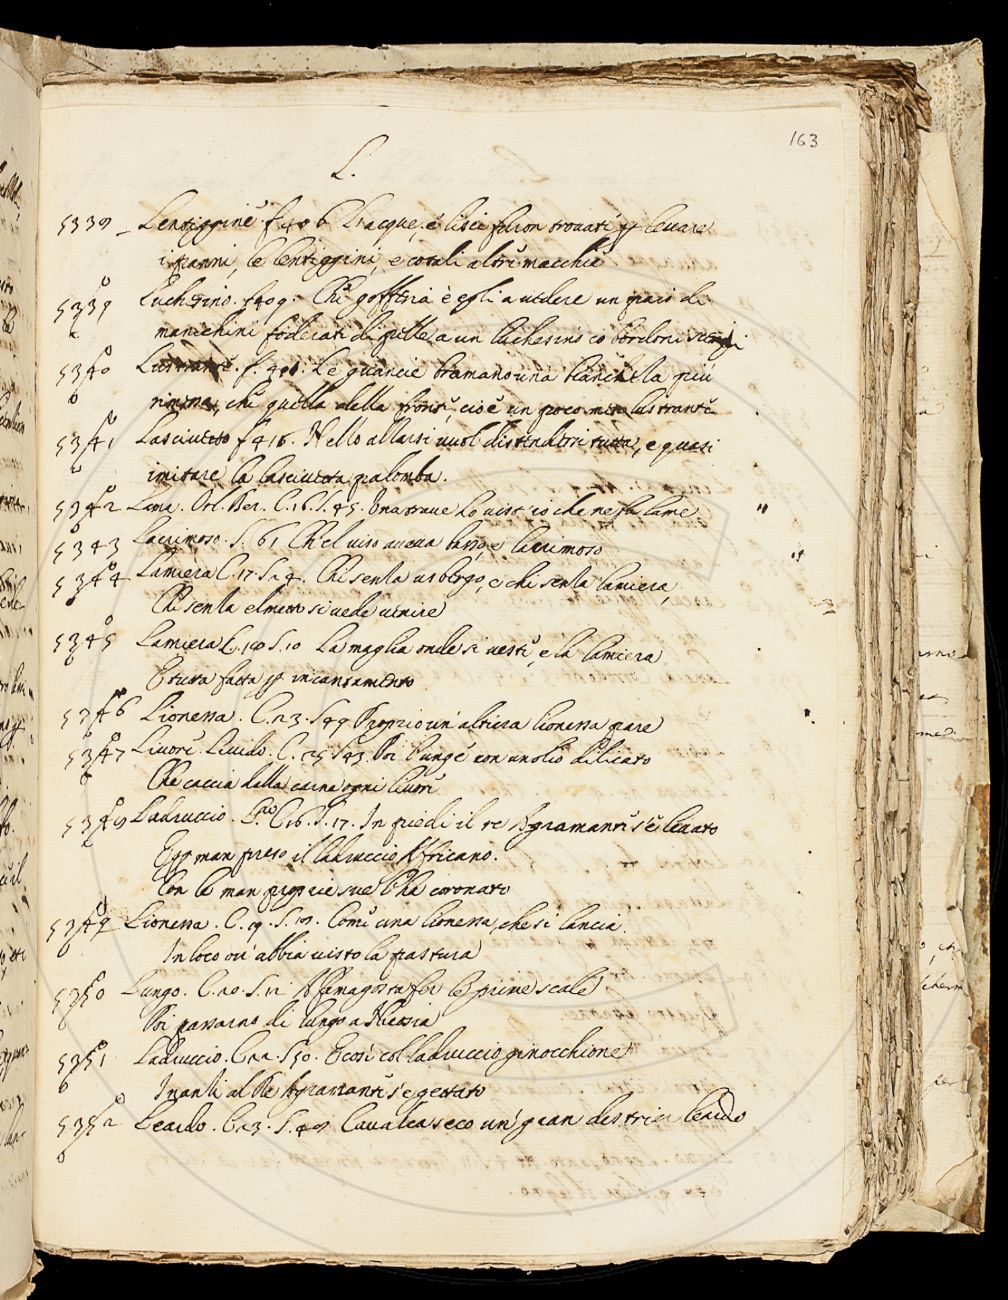 163
L.
5338 Lentiggine f. 406 L'acque, e lisci si son trouati p leuare
i panni, le lentiggini, e cotali altri macchie
5339 Luchesino. f. 409. Che gofferia è egli a uedere un paio di
manichini foderati di pelle a un luchesino co bordoni
5340 Lustrante. f. 411. Le guancie bramano una bianchezza più
rimessa, che quella della fronte, cioè un poco meno lustrante
5341 Lasciuetto f. 416. Nello alzarsi uuol distinder si tutta, e quasi
imitare la lasciuetta palomba.
5342 Lama. Orl. Ber. C. 16. S. 45. Una traue Lo uist' io che ne fa lame
5343 Lacrimoso. S. 61 Ch'el uiso aueua basso, e lacrimoso
5344 Lamiera C. 17. S. 24. Chi senza usbergo, e chi senza lamiera,
Chi senza elmetto si uede uenire
5345 Lamiera C. 18 S. 10 La maglia onde si uesti, e la lamiera
E tutta fatta p incantamento
5346 Lionessa. C. 23. S. 49 Proprio un' altiera lionessa pare
5347 Liuore. Liuido. C. 25. S. 43. Poi l'unge con un olio dilicato
Che caccia dalla carne ogni liuore
5348 Ladruccio. L.º 2.º C. 16. S. 17. In piedi il re Agramante s'è leuato
E p man preso il ladruccio Africano.
Con le man proprie sue l'ha coronato
5349 Lionessa. C. 19. S. 18. Come una lionessa, che si lancia
In loco ou' abbia uisto la pastura
5350 Lungo. C. 20. S. 12 A famagosta fer le prime scale
Poi passarno di lungo a Nicosia
5351 Ladruccio. C. 22. S. 50. E così col ladruccio ginocchione
Inanzi al Re Agramante s'è gettato
5352 Leardo. C. 23. S. 48 Caualca seco un' gran destrier leardo